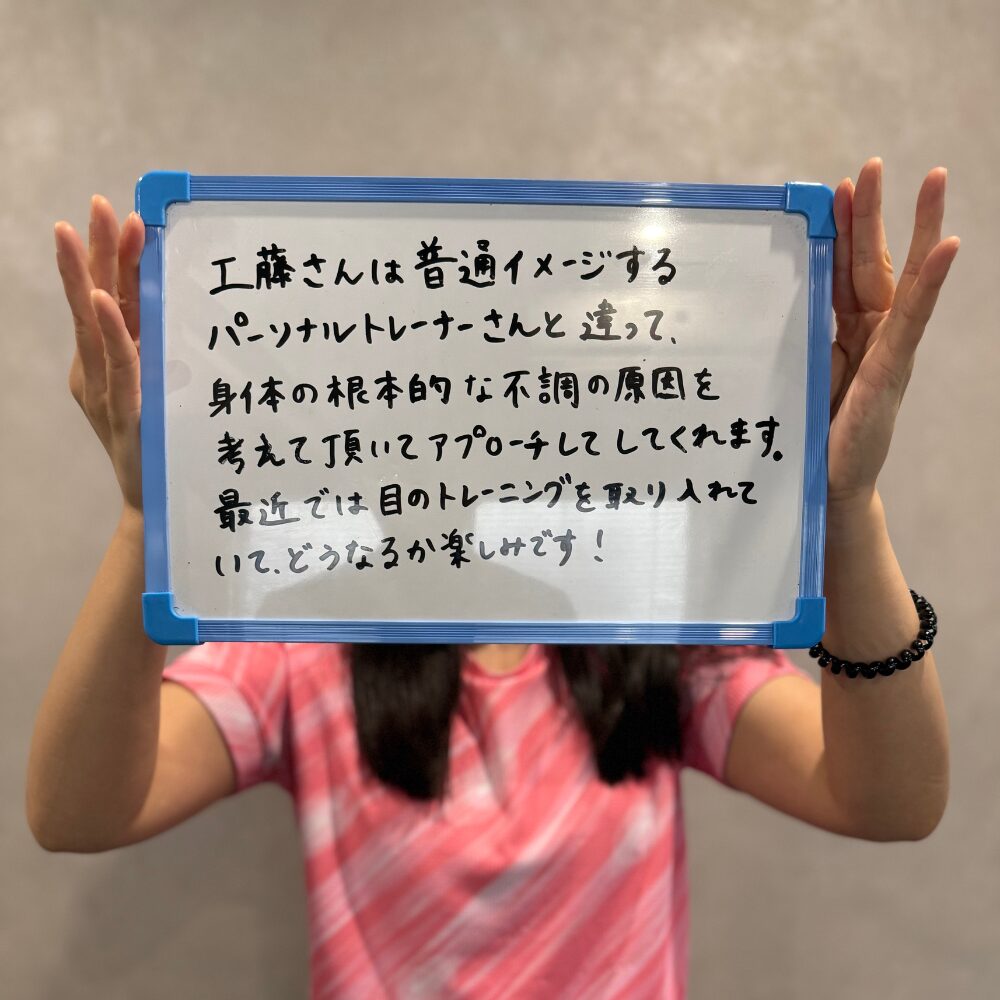 工藤さんは普通イメージする
パーソナルトレーナーさんと違って、
身体の根本的な不調の原因を
考えて頂いてアプローチしてしてくれます。
最近では目のトレーニングを取り入れて
いて、どうなるか楽しみです!